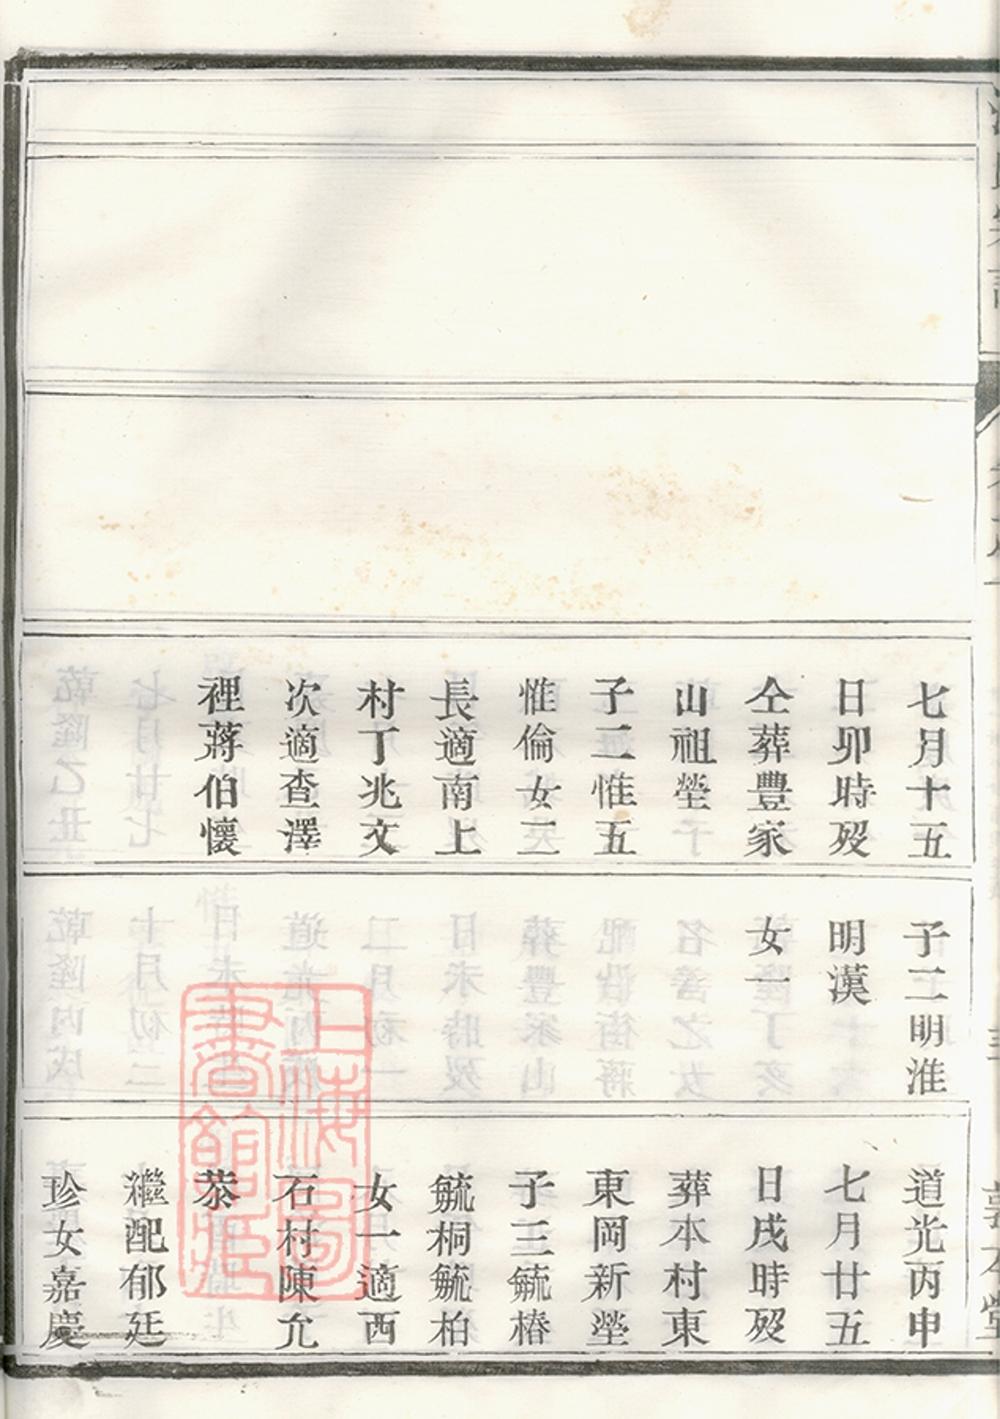 七月十五
日卯時歿
仝葬豐家
山祖塋
子二惟五
惟倫女二
長適南上
村丁兆文
次適查澤
裡蔣伯懷
子二明淮
明漢
女一
道光丙申
七月廿五
日戌時歿
葬本村東
東岡新塋
子三毓椿
毓桐毓柏
女一適西
石村陳允
恭
繼配郁廷
珍女嘉慶
上海圖
書館藏